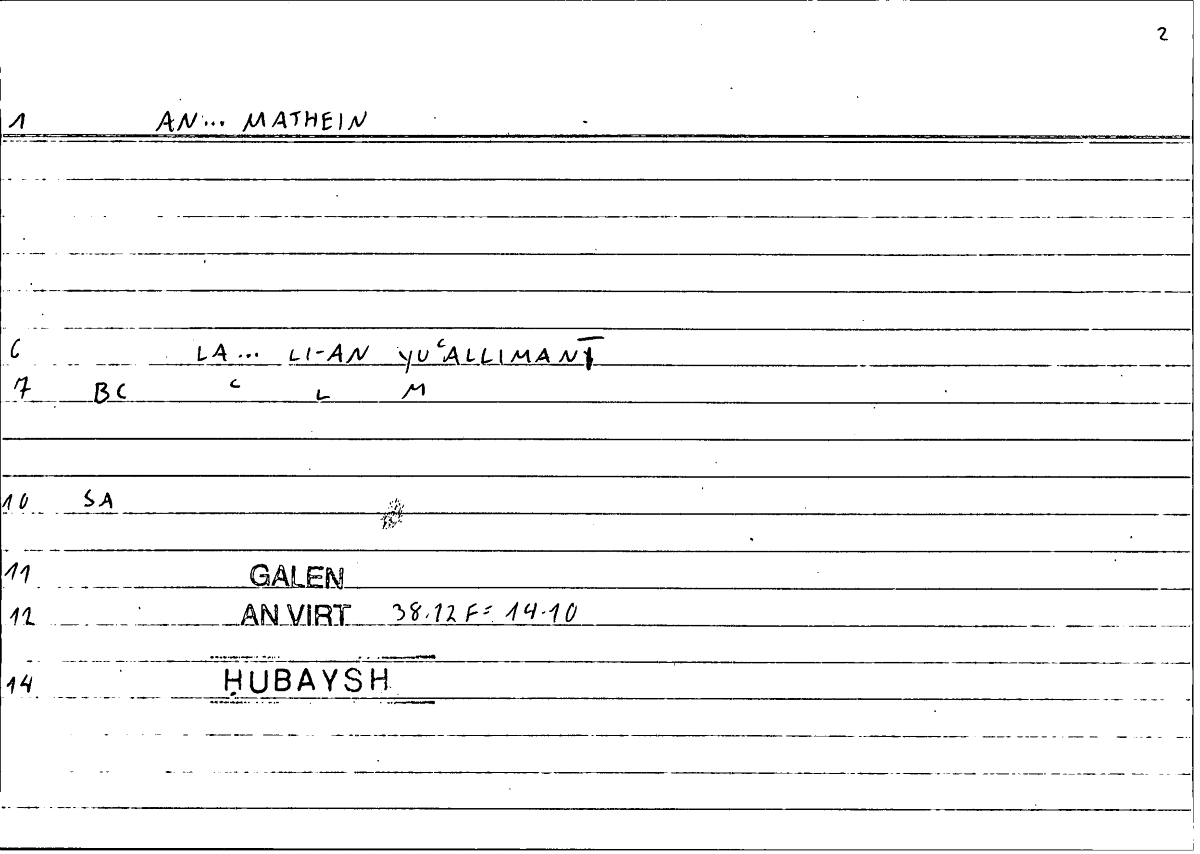 2
1 AN... MATHEIN
6 LA... LI-AN YUʿALLIMANĪ
7 BC ʿ L M
10 SA
11 GALEN
12 AN VIRT 38.12 F= 14.10
14 ḤUBAYSH